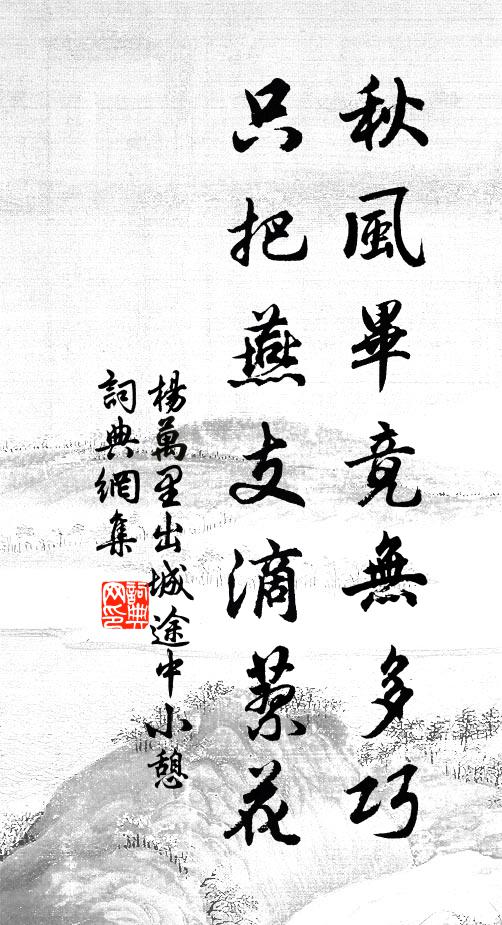 秋風畢竟無多巧
只把燕支滴蓼花
楊萬里出城途中小憩
詞典網集
詞典
网印